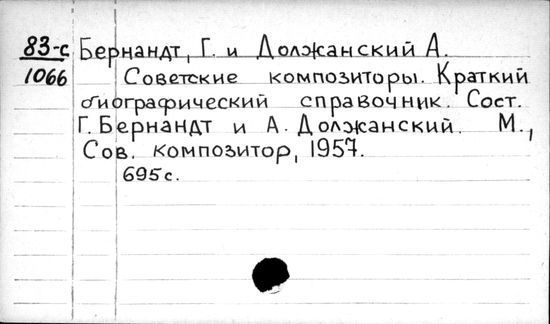 83-с Бернандт, Г. и Должанский А.
1066 Советские композиторы. Краткий
биографический справочник. Сост.
Г. Бернандт и А. Должанский. М.,
Сов. композитор, 1957.
695с.